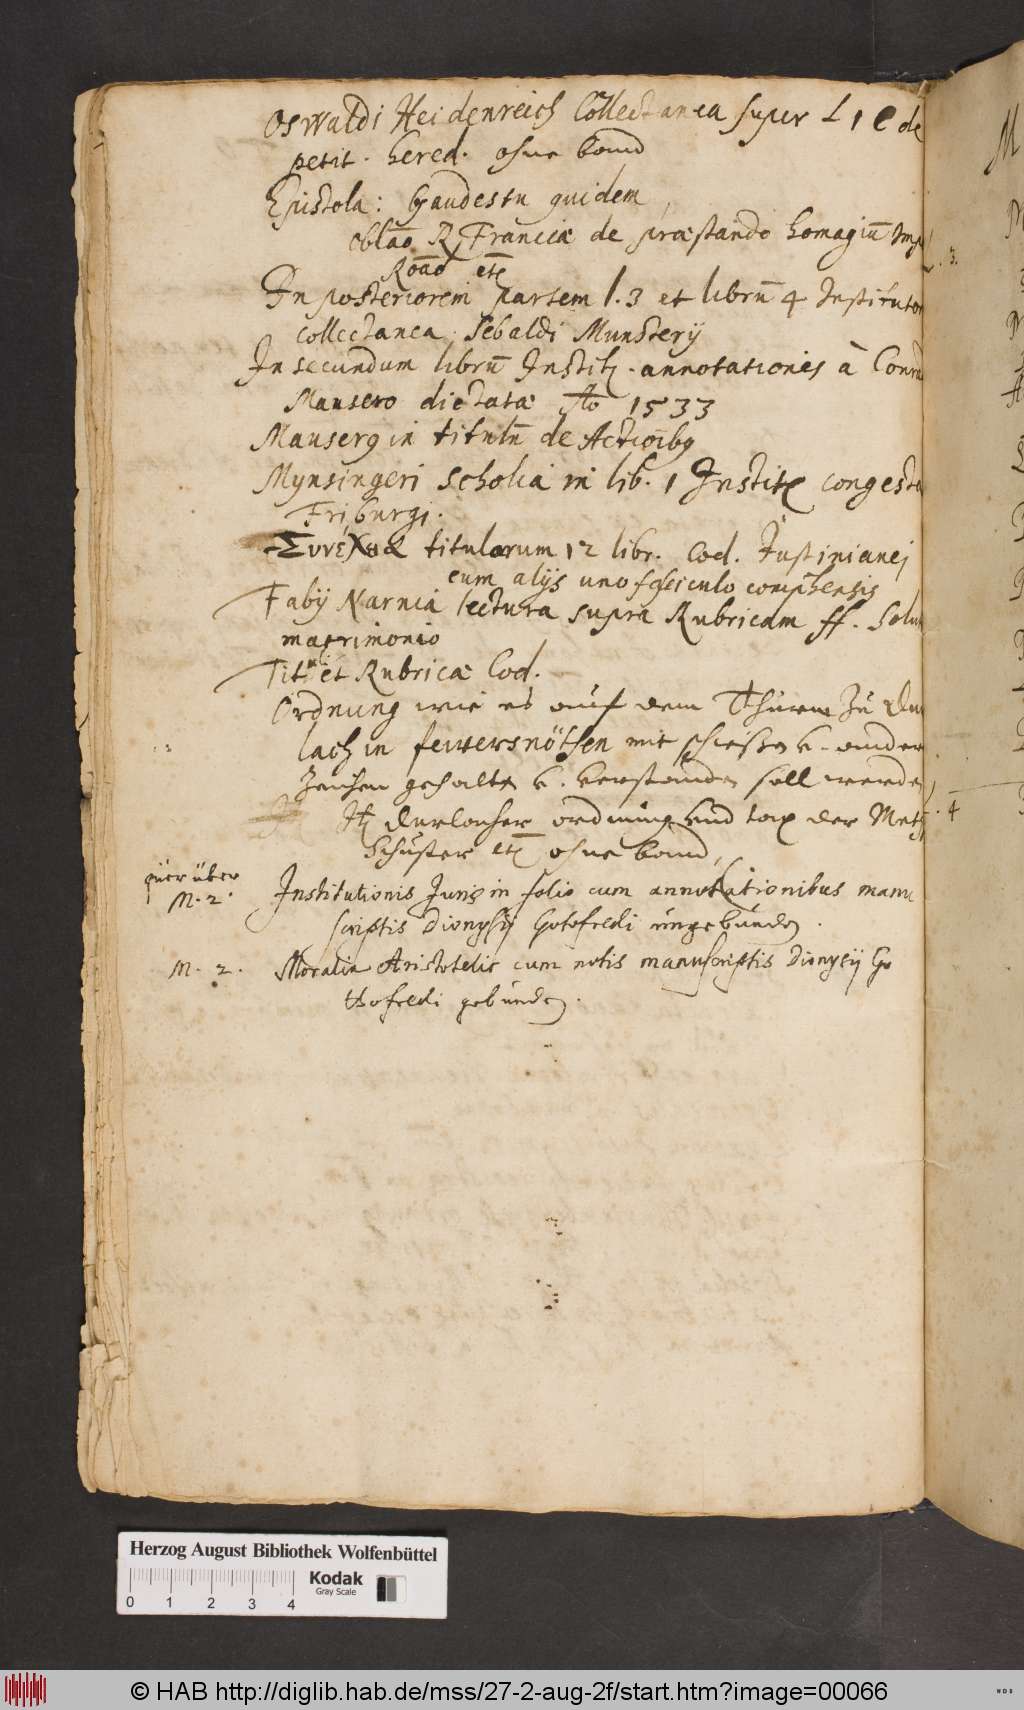 Oswaldi Heidenreich Collectanea super L 1 C de
petit. hered. ohne band
Epistola: Gaudestu quidem
oblaō R. Franciæ de præstando homagiū Imp
Roāo etc
In posteriorem partem l. 3 et librū 4 Institutor
collectanea Sebaldi Munsterij
In secundum librū Instit. annotationes à Conra
Mausero dictatæ Ao 1533
Mauserg in titulū de Actioībg
Mynsingeri scholia in lib. 1 Instit congesta
Friburgi.
titulorum 12 libr. Cod. Justinianej
cum alijs uno fasciculo comphensis
Fabij Narnia lectura supra Rubricam ff. Solut
matrimonio
Tit. et Rubricæ Cod.
Ordnung wie es auf dem Thurm zu Dur
lach in fewersnöthen mit schießen v. ander
Zeichen gehalten v. verstanden soll werden
It Durlacher ordnung vnd tax der Metz
Schuster etc ohne band
quer über
M. 2. Institutionis Juris in folio cum annotationibus manu
scriptis Dionysij Gotofredi ungebunden.
M. 2. Moralia Aristotelis cum notis manuscriptis Dionysij Go
thofredi gebunden.
3.
4
Herzog August Bibliothek Wolfenbüttel
Kodak
Gray Scale
0 1 2 3 4
© HAB http://diglib.hab.de/mss/27-2-aug-2f/start.htm?image=00066